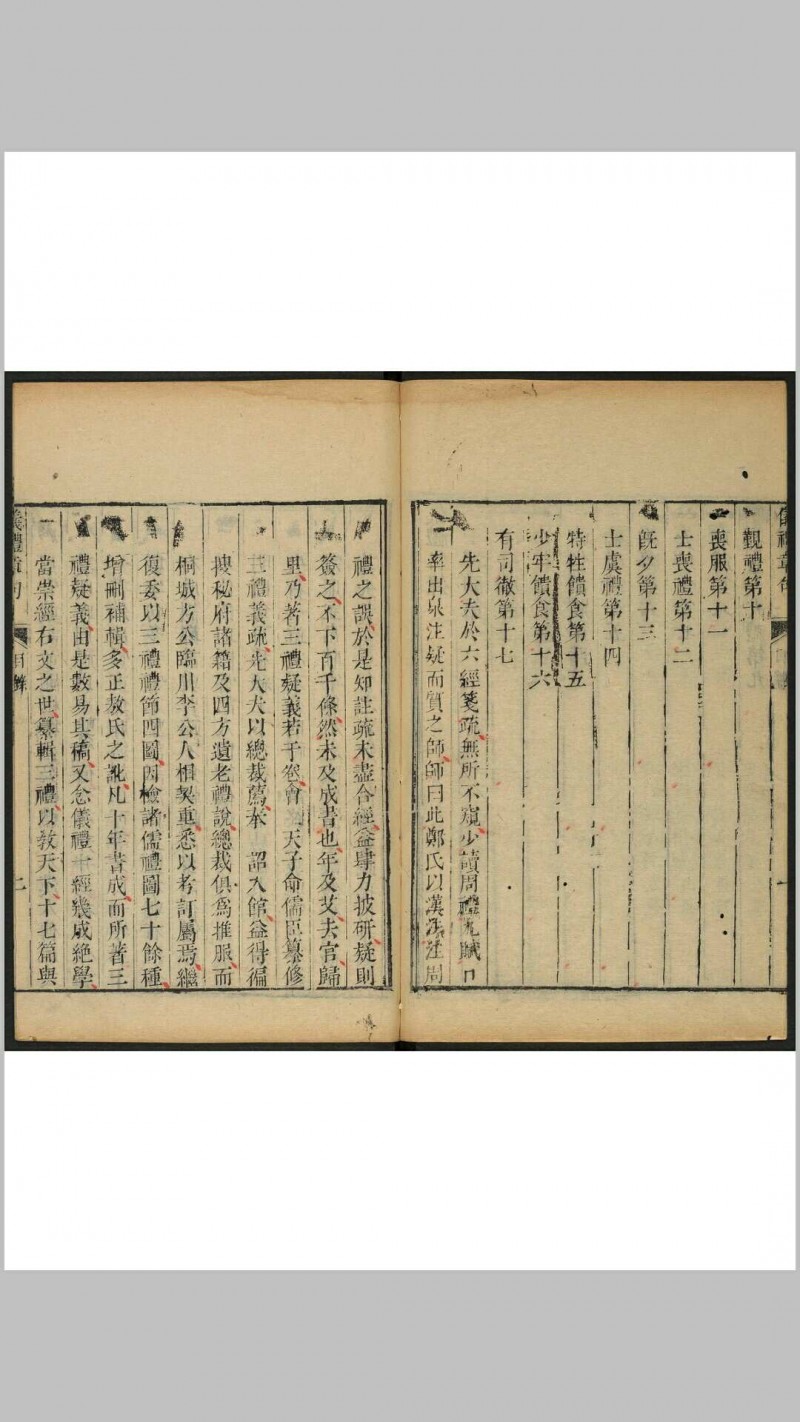 儀禮章句
覲禮第十
喪服第十一
士喪禮第十二
旣夕第十三
士虞禮第十四
特牲饋食第十五
少牢饋食第十六
有司徹第十七
先大夫於六經箋疏無所不窺少讀周禮九賦口
率出泉注疑而質之師師曰此鄭氏以漢法注周
禮之誤於是知註疏未盡合經益肆力披研疑則
簽之不下百千條然未及成書也年及艾去官歸
里乃著三禮疑義若干卷會 天子命儒臣纂修
三禮義疏先大夫以總裁薦奉 詔入館益得徧
搜秘府諸籍及四方遺老禮說總裁俱爲推服而
桐城方公臨川李公人相契重悉以考訂屬焉繼
復委以三禮禮節四圖因檢諸儒禮圖七十餘種
增刪補輯多正敖氏之訛凡十年書成而所著三
禮疑義由是數易其稿又念儀禮一經幾成絕學
當崇經右文之世纂輯三禮以敎天下十七篇與
儀禮章句 目錄 二